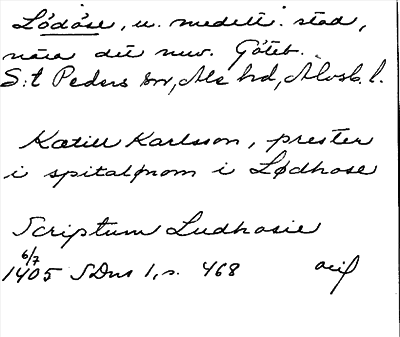 Lödöse, u. medelt. stad,
nära det nuv. Göteb.
S:t Peders sn, Ale hd, Älvsb. l.
Katill Karlsson, prester
i spitalınom i Lødhose
Scriptum Ludhosie
6/7
1405 SDns 1, s. 468